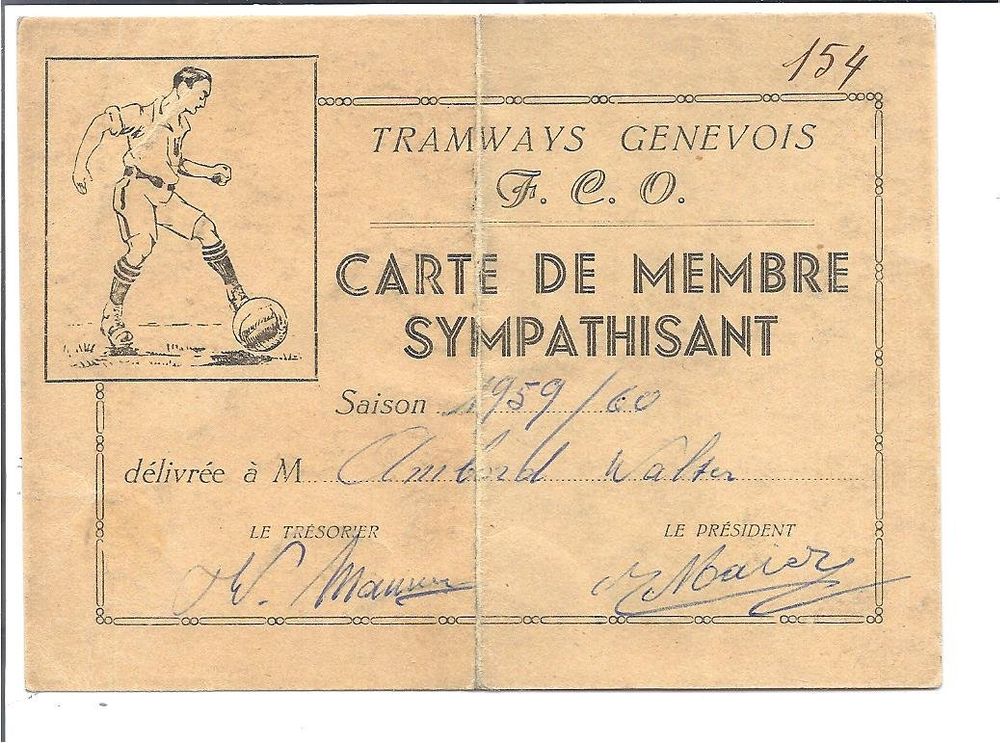 154
TRAMWAYS GENEVOIS
F. C. O.
CARTE DE MEMBRE
SYMPATHISANT
Saison 1959/60
délivrée à M Ambord Walter
LE TRÉSORIER
LE PRÉSIDENT
W.